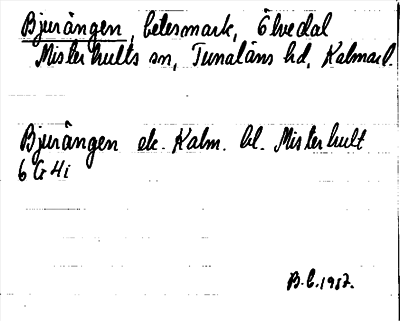 Bjurängen, betesmark, Älvedal
Misterhults sn, Tunaläns hd, Kalmar l.
Bjurängen ek. Kalm. bl. Misterhult
6 G 4 i
B.C. 1982.